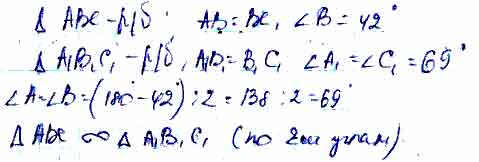 Δ ABC – р/б. AB = BC, ∠B = 42°
Δ A₁B₁C₁ – р/б, A₁B₁ = B₁C₁ ∠A₁ = ∠C₁ = 69°
∠A = ∠B = (180 - 42) : 2 = 138 : 2 = 69°
Δ ABC ∞ Δ A₁B₁C₁ (по 2ум углам)